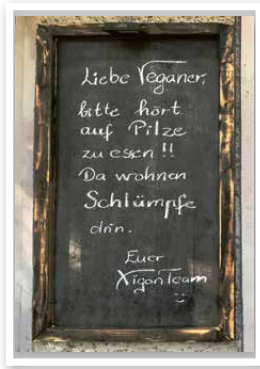 Liebe Veganer,
bitte hört
auf Pilze
zu essen !!
Da wohnen
Schlümpfe
drin.
Euer
Xigon Team